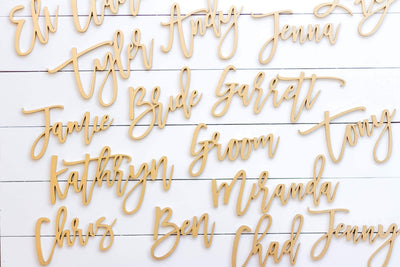 Eli Andy Jenna
Tyler
Bride Garrett
Jamie Groom Tony
Kathryn Miranda
Chris Ben Chad Jenny